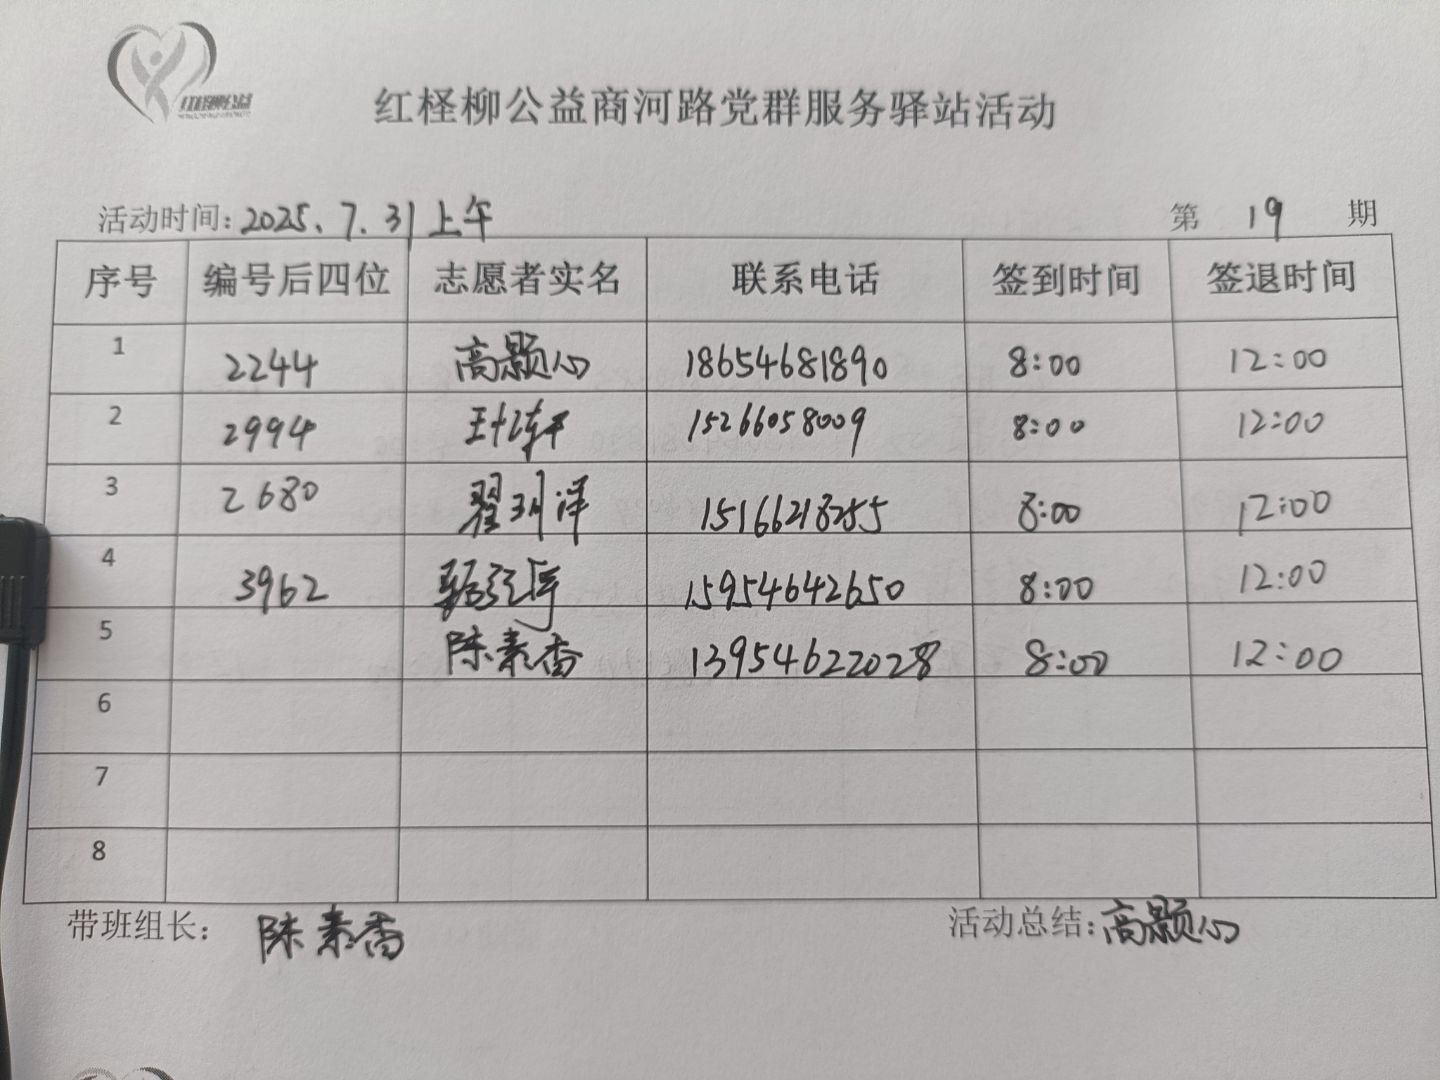 红柽柳公益
红柽柳公益商河路党群服务驿站活动
活动时间：2025.7.31上午 第 19 期
序号 编号后四位 志愿者实名 联系电话 签到时间 签退时间
1 2244 高颢心 18654681890 8:00 12:00
2 2994 15266058009 8:00 12:00
3 2680 翟玥洋 15166218255 8:00 12:00
4 3962 15954642650 8:00 12:00
5 陈素香 13954622028 8:00 12:00
6
7
8
带班组长： 陈素香 活动总结：高颢心